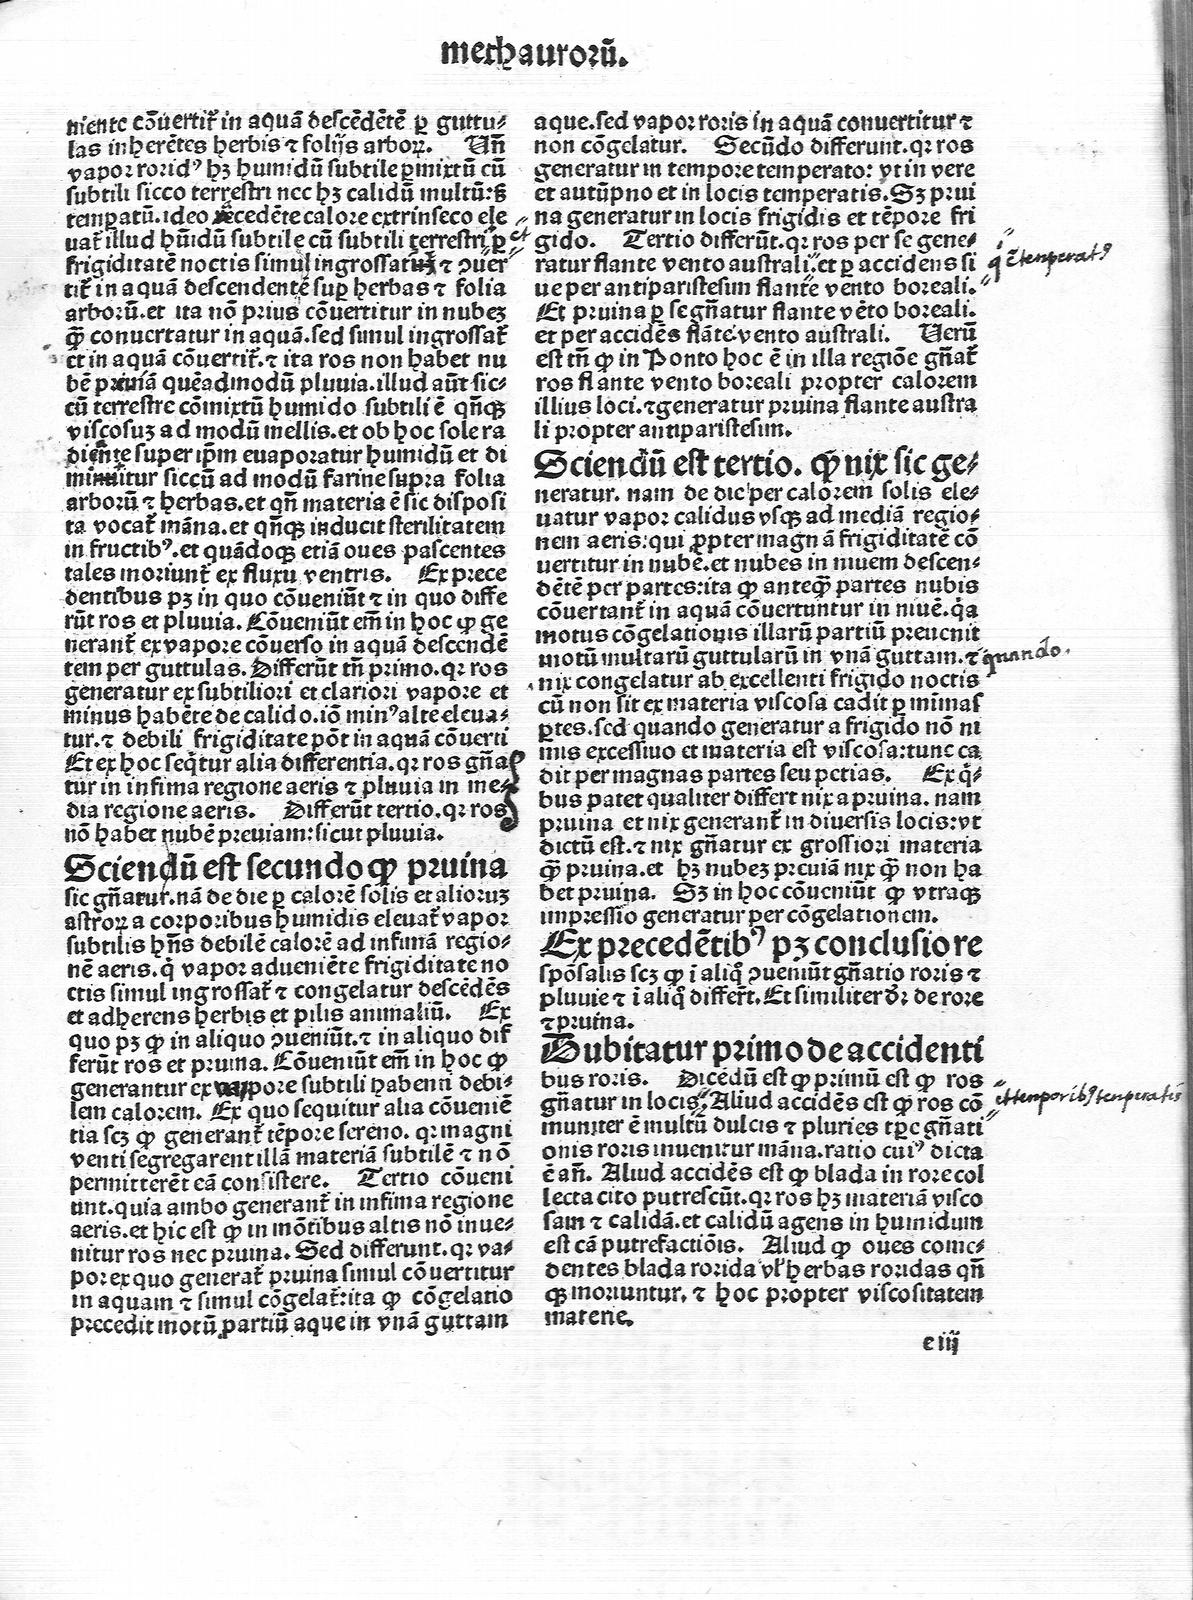 methaurorū.
niente cōuertit̄ in aquā descēdētē ꝑ guttu⸗
las inherētes herbis ⁊ folijs arboꝝ. Un̄
vapor rorid⁹ hꝫ humidū subtile ꝑmixtū cū
subtili sicco terrestri nec hꝫ calidū multū:sꝫ
tempatū.ideo recedēte calore extrinseco ele
uat̄ illud hūidū subtile cū subtili terrestri ꝑ
et
frigiditatē noctis simul ingrossatur ⁊ ↄuer
tit̄ in aquā descendentē suꝑ herbas ⁊ folia
arborū.et ita nō prius cōuertitur in nubeꝫ
ꝙ̄ conuertatur in aquā.sed simul ingrossat̄
et in aquā cōuertit̄.⁊ ita ros non habet nu
bē preuiā quēadmodū pluuia.illud aūt sic⸗
cū terrestre cōmixtū humido subtili ē qn̄qꝫ
viscosuꝫ ad modū mellis.et ob hoc sole ra
diente super ip̄m euaporatur humidū et di
minuitur siccū ad modū farine supra folia
arborū ⁊ herbas.et qn̄ materia ē sic disposi
ta vocat̄ māna.et qn̄qꝫ inducit sterilitatem
in fructib⁹.et quādoqꝫ etiā oues pascentes
tales moriunt̄ ex fluxu ventris. Ex prece
dentibus pꝫ in quo cōueniūt ⁊ in quo diffe
rūt ros et pluuia. Cōueniūt em̄ in hoc ꝙ ge
nerant̄ ex vapore cōuerso in aquā descendē
tem per guttulas. Differūt tn̄ primo.qꝛ ros
generatur ex subtiliori et clariori vapore et
minus habēte de calido.iō min⁹ alte eleua⸗
tur.⁊ debili frigiditate pōt in aquā cōuerti
Et ex hoc seq̄tur alia differentia.qꝛ ros gn̄a
tur in infima regione aeris ⁊ pluuia in me⸗
dia regione aeris. Differūt tertio.qꝛ ros
nō habet nubē preuiam:sicut pluuia.
Sciendū est secundo ꝙ pruina
sic gn̄atur.nā de die ꝑ calorē solis et alioruꝫ
astroꝝ a corporibus humidis eleuat̄ vapor
subtilis hn̄s debilē calorē ad infimā regio⸗
nē aeris.q̇ vapor adueniēte frigiditate no
ctis simul ingrossat̄ ⁊ congelatur descēdēs
et adherens herbis et pilis animaliū. Ex
quo pꝫ ꝙ in aliquo ↄueniūt.⁊ in aliquo dif
ferūt ros et pruina. Cōueniūt em̄ in hoc ꝙ
generantur ex vapore subtili habenti debi⸗
lem calorem. Ex quo sequitur alia cōueniē
tia scꝫ ꝙ generant̄ tēpore sereno. qꝛ magni
venti segregarent illā materiā subtilē ⁊ nō
permitterēt eā consistere. Tertio cōueni
unt.quia ambo generant̄ in infima regione
aeris.et hic est ꝙ in mōtibus altis nō inue⸗
nitur ros nec pruina. Sed differunt.qꝛ va⸗
por ex quo generat̄ pruina simul cōuertitur
in aquam ⁊ simul cōgelat̄:ita ꝙ cōgelatio
precedit motū partiū aque in vnā guttam
aque.sed vapor roris in aquā conuertitur ⁊
non cōgelatur. Secūdo differunt.qꝛ ros
generatur in tempore temperato: vt in vere
et autūpno et in locis temperatis. Sꝫ prui
na generatur in locis frigidis et tēpore fri
gido. Tertio differūt.qꝛ ros per se gene⸗
ratur flante vento australi.et ꝑ accidens si
ue per antiparistesim flante vento boreali.
Et pruina ꝑ se gn̄atur flante vēto boreali.
et per accidēs flāte vento australi. Uerū
est tn̄ ꝙ in Ponto hoc ē in illa regiōe gn̄at̄
ros flante vento boreali propter calorem
illius loci.⁊generatur pruina flante austra
li propter antiparistesim.
Sciendū est tertio. ꝙ nix sic ge⸗
neratur. nam de die per calorem solis ele⸗
uatur vapor calidus vsqꝫ ad mediā regio⸗
nem aeris:qui ꝓpter magnā frigiditatē cō
uertitur in nubē.et nubes in niuem descen⸗
dētē per partes:ita ꝙ anteqꝙ̄ partes nubis
cōuertant̄ in aquā cōuertuntur in niuē.q̇a
motus cōgelationis illarū partiū preuenit
motū multarū guttularū in vnā guttam.⁊
quando.
nix congelatur ab excellenti frigido noctis
cū non sit ex materia viscosa cadit ꝑ minimas
ꝑtes.sed quando generatur a frigido nō ni
mis excessiuo et materia est viscosa:tunc ca
dit per magnas partes seu petias. Ex q̇⸗
bus patet qualiter differt nix a pruina. nam
pruina et nix generant̄ in diuersis locis:vt
dictū est.⁊ nix gn̄atur ex grossiori materia
ꝙ̄ pruina.et hꝫ nubeꝫ preuiā nix ꝙ̄ non ha
bet pruina. Sꝫ in hoc cōueniūt ꝙ vtraqꝫ
impressio generatur per cōgelationem.
Ex precedētib⁹ pꝫ conclusio re
spōsalis scꝫ ꝙ ī aliq̊ ↄueniūt gn̄atio roris ⁊
pluuie ⁊ ī aliq̊ differt̄. Et similiter dr̄ de rore
⁊ pruina.
Dubitatur primo de accidenti
bus roris. Dicēdū est ꝙ primū est ꝙ ros
gn̄atur in locis. Aliud accidēs est ꝙ ros cō
et temporib⁹ temperatis
muniter ē multū dulcis ⁊ pluries tꝑe gn̄ati
onis roris inuenitur māna.ratio cui⁹ dicta
ē an̄. Aliud accidēs est ꝙ blada in rore col
lecta cito putrescūt.qꝛ ros hꝫ materiā visco
sam ⁊ calidā.et calidū agens in humidum
est cā putrefactiōis. Aliud ꝙ oues come⸗
dentes blada rorida vl̄ herbas roridas qn̄
qꝫ moriuntur. ⁊ hoc propter viscositatem
materie.
e iij